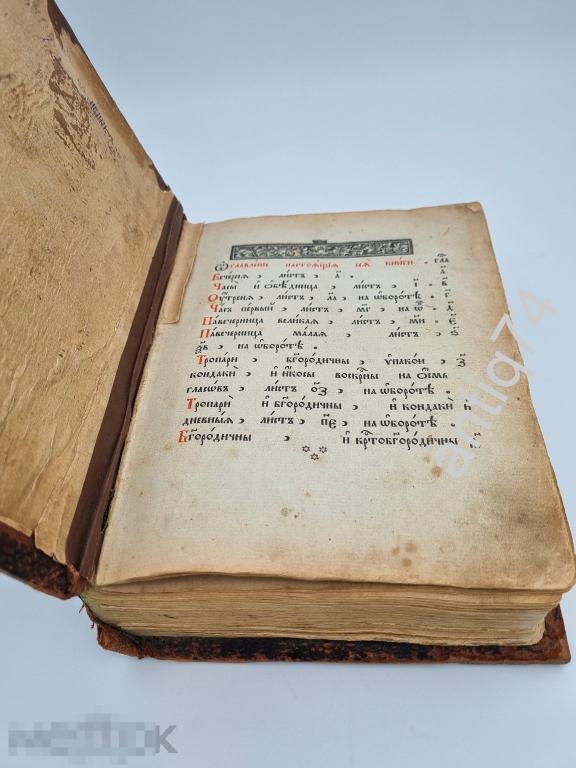 Ѡглавленїе настоѧщїѧ сеѧ̀ кни́ги . гла
Вече́рнѧ , ли́стъ а҃ . а҃
Часы̀ и҆ ѡ҆бѣ́дница , ли́стъ і҃ . в҃
Ѹ҆́тренѧ , ли́стъ ла҃ , на ѡ҆боро́тѣ . г҃
Ча́съ пе́рвый , ли́стъ мг҃ , на ѡ҆ . д҃
Павече́рница вели́каѧ , ли́стъ ми҃ . є҃
Павече́рница ма́лаѧ , ли́стъ . ѕ҃
на ѡ҆боро́тѣ .
Тропарѝ , бг҃оро́дичны , ѵ҆пакоѝ , з҃
кондакѝ , и҆ і҆́косы воскр҇ны на ѻ҆́смь
гласѡ́въ , ли́стъ ѻ҃з , на ѡ҆боро́тѣ .
Тропарѝ и҆ бг҃оро́дичны , и҆ кондакѝ и҃
дне́вныѧ , ли́стъ пє҃ , на ѡ҆боро́тѣ .
Бг҃оро́дичны , и҆ крⷭ҇тобг҃оро́дичны .
antiq74
МЕШОК